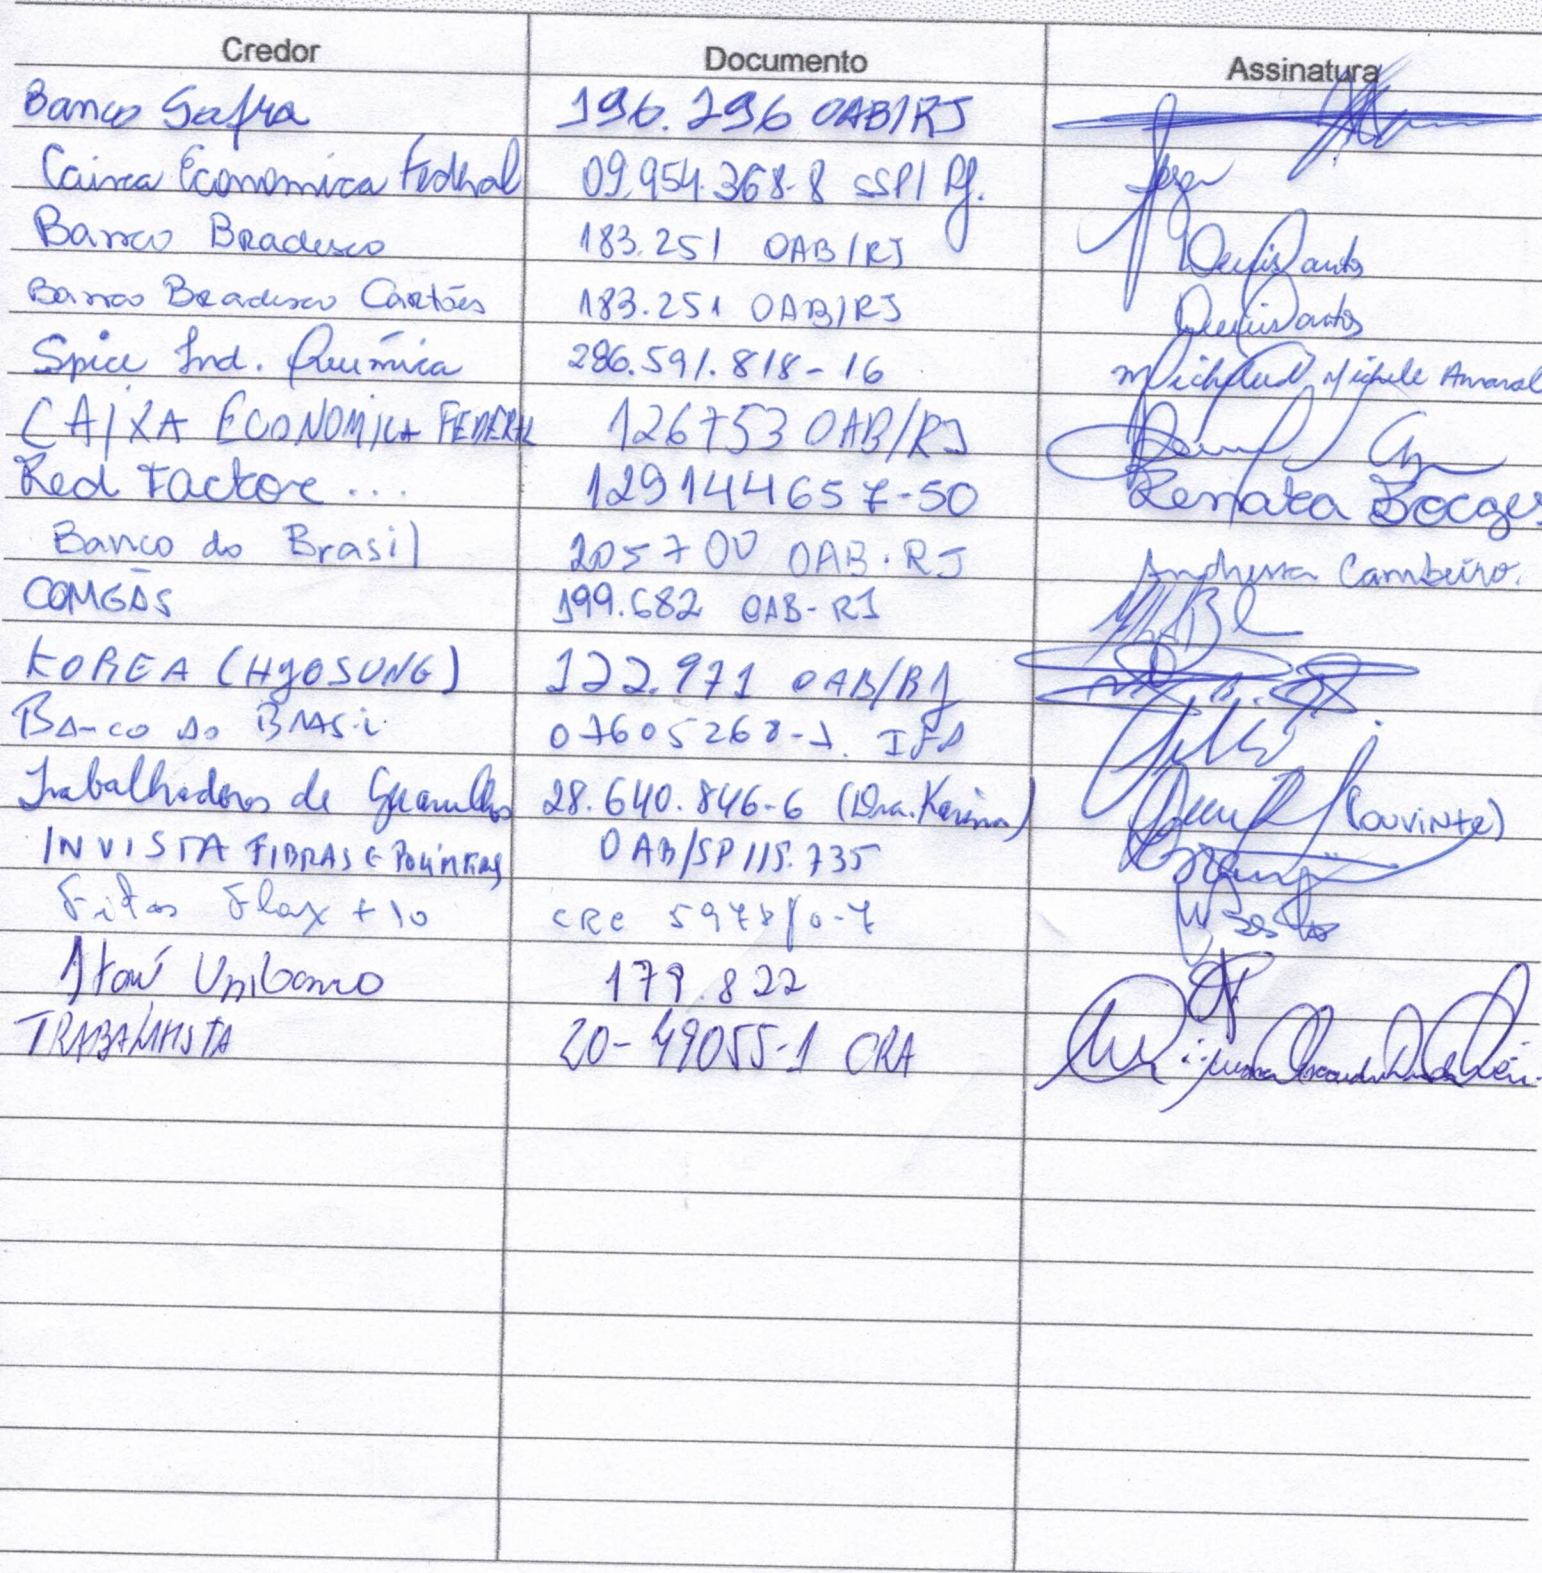 Credor Documento Assinatura
Banco Safra 196.296 OAB/RJ
Caixa Economica Federal 09.954.368-8 SSP/
Banco Bradesco 183.251 OAB/RJ
Banco Bradesco Cartões 183.251 OAB/RJ
Spice Ind. Química 286.591.818-16 Michele Amaral
CAIXA ECONOMICA FEDERAL 126753 OAB/RJ
Red Factor ... 129144657-50 Renata Borges
Banco do Brasil 205700 OAB.RJ Andressa Cambeiro.
COMGÁS 199.682 OAB-RJ
KOREA (HYOSUNG) 122.971 OAB/RJ
Banco do Brasil
Trabalhadores de Guarulhos 28.640.846-6 (Dra. Karina) (ouvinte)
INVISTA FIBRAS E POLÍMEROS OAB/SP 115.735
Fitas Flax + 10 CRC
Itaú Unibanco 179.822
TRABALHISTA 20-49055-1 CRA